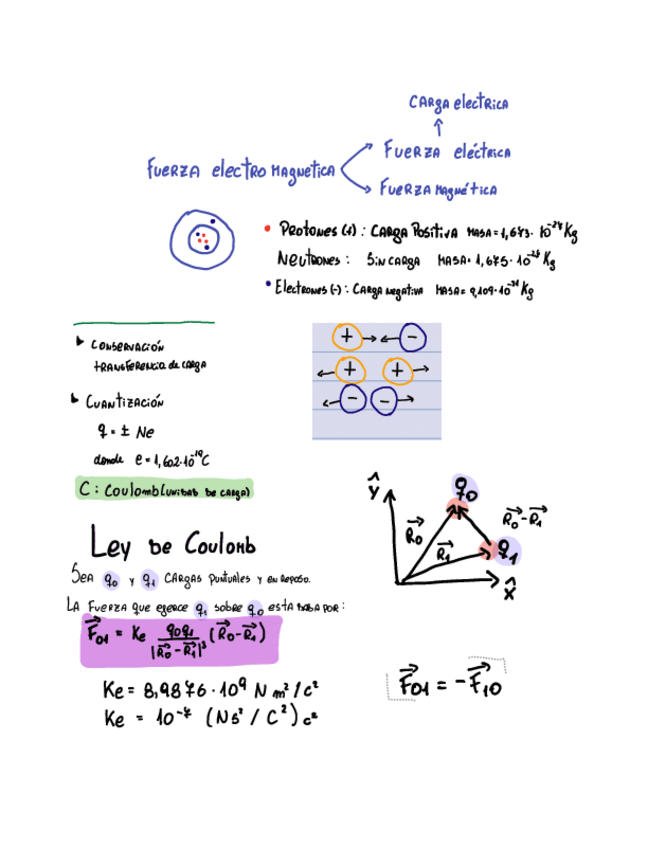 CARGA electrica
↑
FUERZA eléctrica
FUERZA electro MAGNETICA
FUERZA Magnética
• Protones (+) : CARGA Positiva MASA = 1,673 · 10^-24 Kg
Neutrones : Sin CARGA MASA = 1,675 · 10^-24 Kg
• Electrones (-) : CARGA negativa MASA = 9,109 · 10^-31 Kg
Conservación
+ → ← -
transferencia de carga
← + + →
Cuantización
← - - →
q = ± Ne
donde e = 1,602 · 10^-19 C
C : Coulomb (unidad de carga)
Ŷ
q0
R0
R0 - R1
R1
q1
X̂
Ley de Coulomb
Sea q0 y q1 cargas puntuales y en reposo.
La fuerza que ejerce q1 sobre q0 esta dada por :
F01 = Ke q0q1 / |R0 - R1|³ (R0 - R1)
Ke = 8,9876 · 10^9 N m² / c²
F01 = - F10
Ke = 10^-7 (Ns² / C²) c²